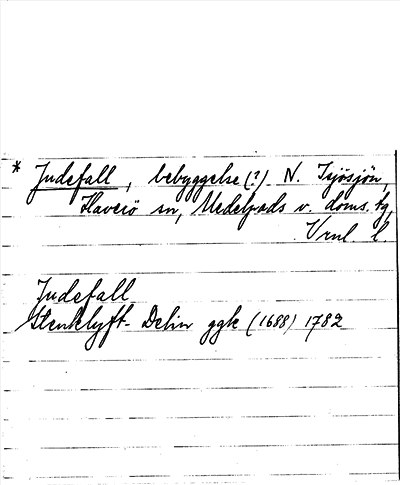 * Judefall, bebyggelse (?) N. Tejösjön,
Haverö sn, Medelpads v. doms. tg,
Vrnl. l.
Judefall
Stenklyft- Delin ggk (1688) 1782